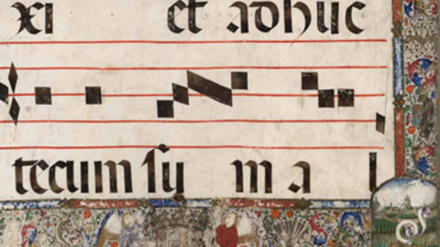 xi et adhuc
tecum sū m a l